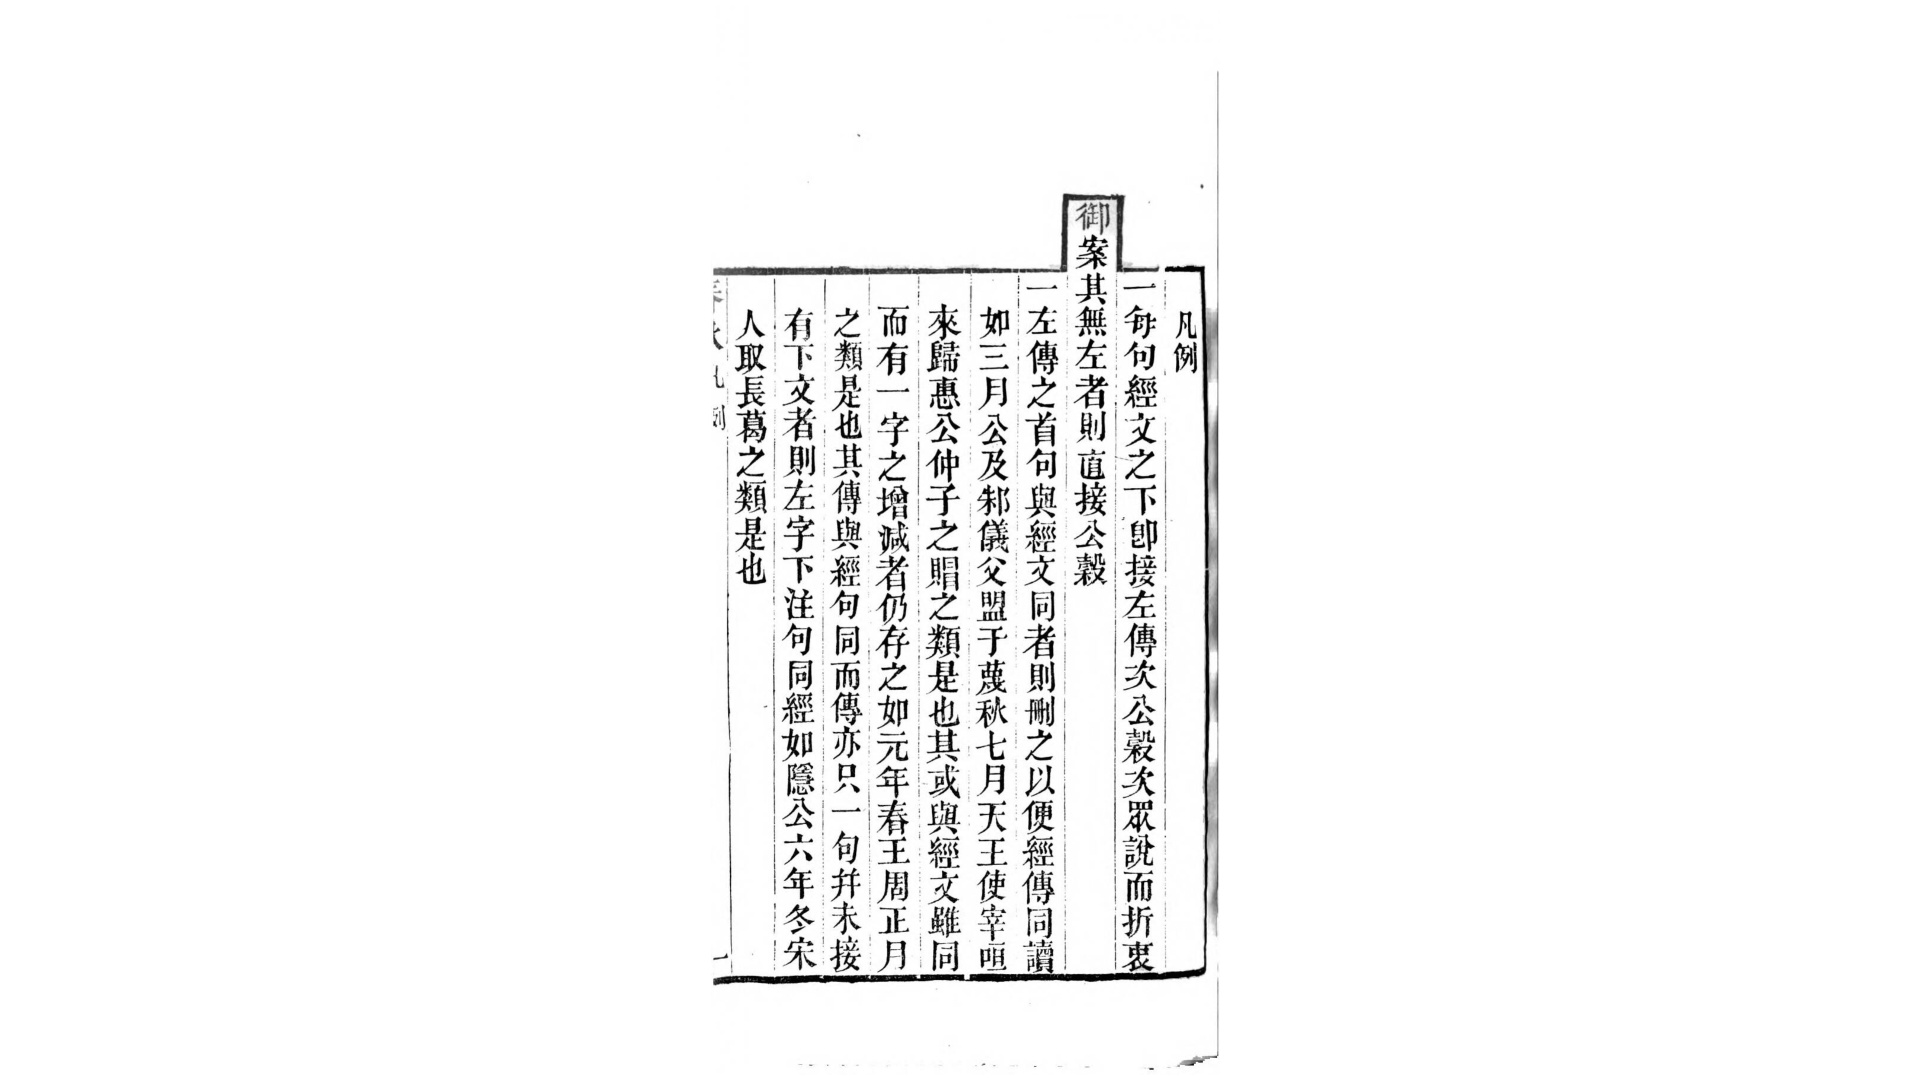 凡例
一每句經文之下卽接左傳次公穀次眾說而折衷
御案其無左者則直接公穀
一左傳之首句與經文同者則刪之以便經傳同讀
如三月公及邾儀父盟于蔑秋七月天王使宰咺
來歸惠公仲子之賵之類是也其或與經文雖同
而有一字之增減者仍存之如元年春王周正月
之類是也其傳與經句同而傳亦只一句幷未接
有下文者則左字下注句同經如隱公六年冬宋
人取長葛之類是也
春秋凡例
一